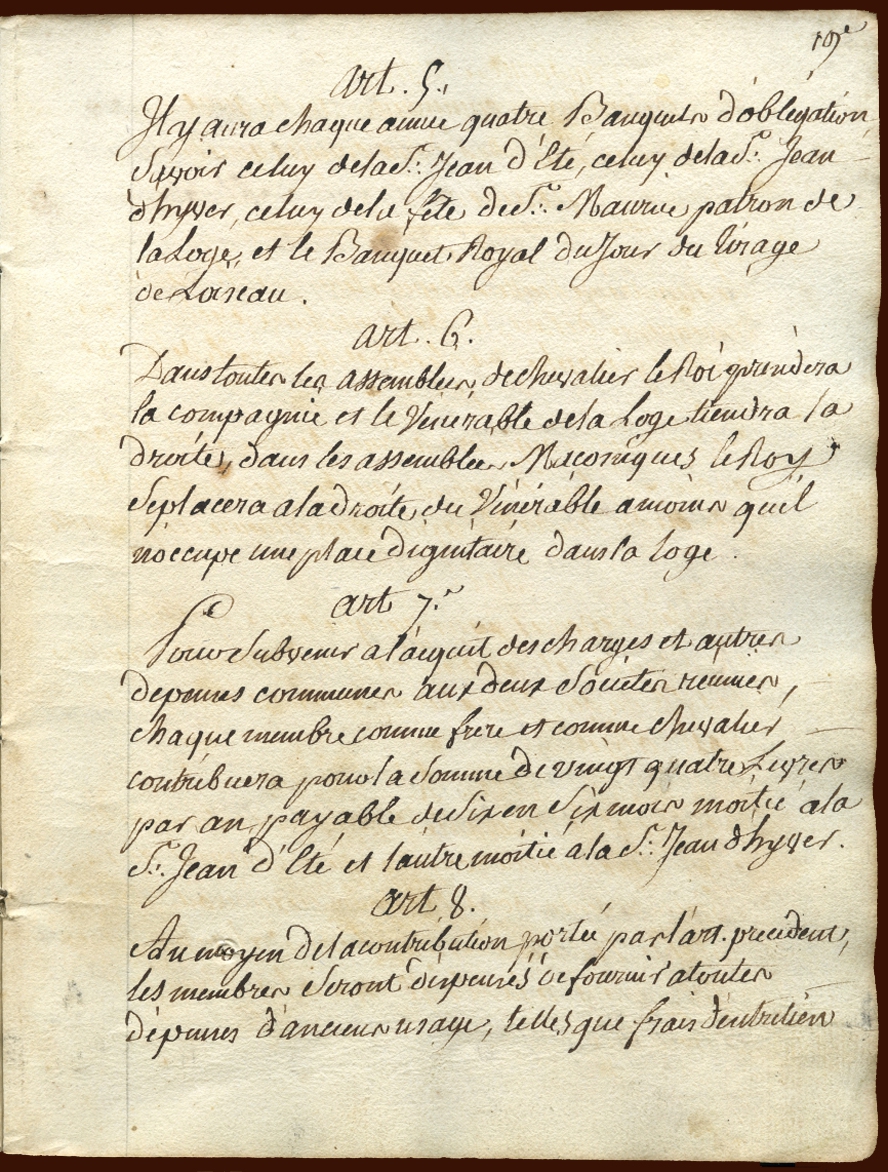 19e
art. 5.
Il y aura chaque année quatre Banquets d'obligation,
Savoir celuy de la St. Jean d'Eté, celuy de la St. Jean
d'hyver, celuy de la fête de St. Maurice patron de
la Loge, et le Banquet Royal du Jour du tirage
de Loiseau.
art. 6.
Dans toutes les assemblées de chevalier le Roi prendera
la compagnie et le Vénérable de la Loge tiendra la
droite, dans les assemblées Maconiques le Roy
se placera a la droite du Vénérable amoins qu'il
n'occupe une place Dignitaire dans la loge.
art 7.
Pour Subvenir a l'acquit des charges et autres
depenses communes aux deux Societés reunies,
chaque membre comme frere et comme chevalier
contribuera pour la Somme de vingt quatre Livres
par an, payable de Six en Six mois moitié a la
St. Jean d'Eté et l'autre moitié a la St. Jean d'hyver.
art 8.
Au moyen de la contribution portée par l'art. precedent,
les membres Seront dispensés de fournir a toutes
dépenses d'ancien usage, telles que frais d'entretien